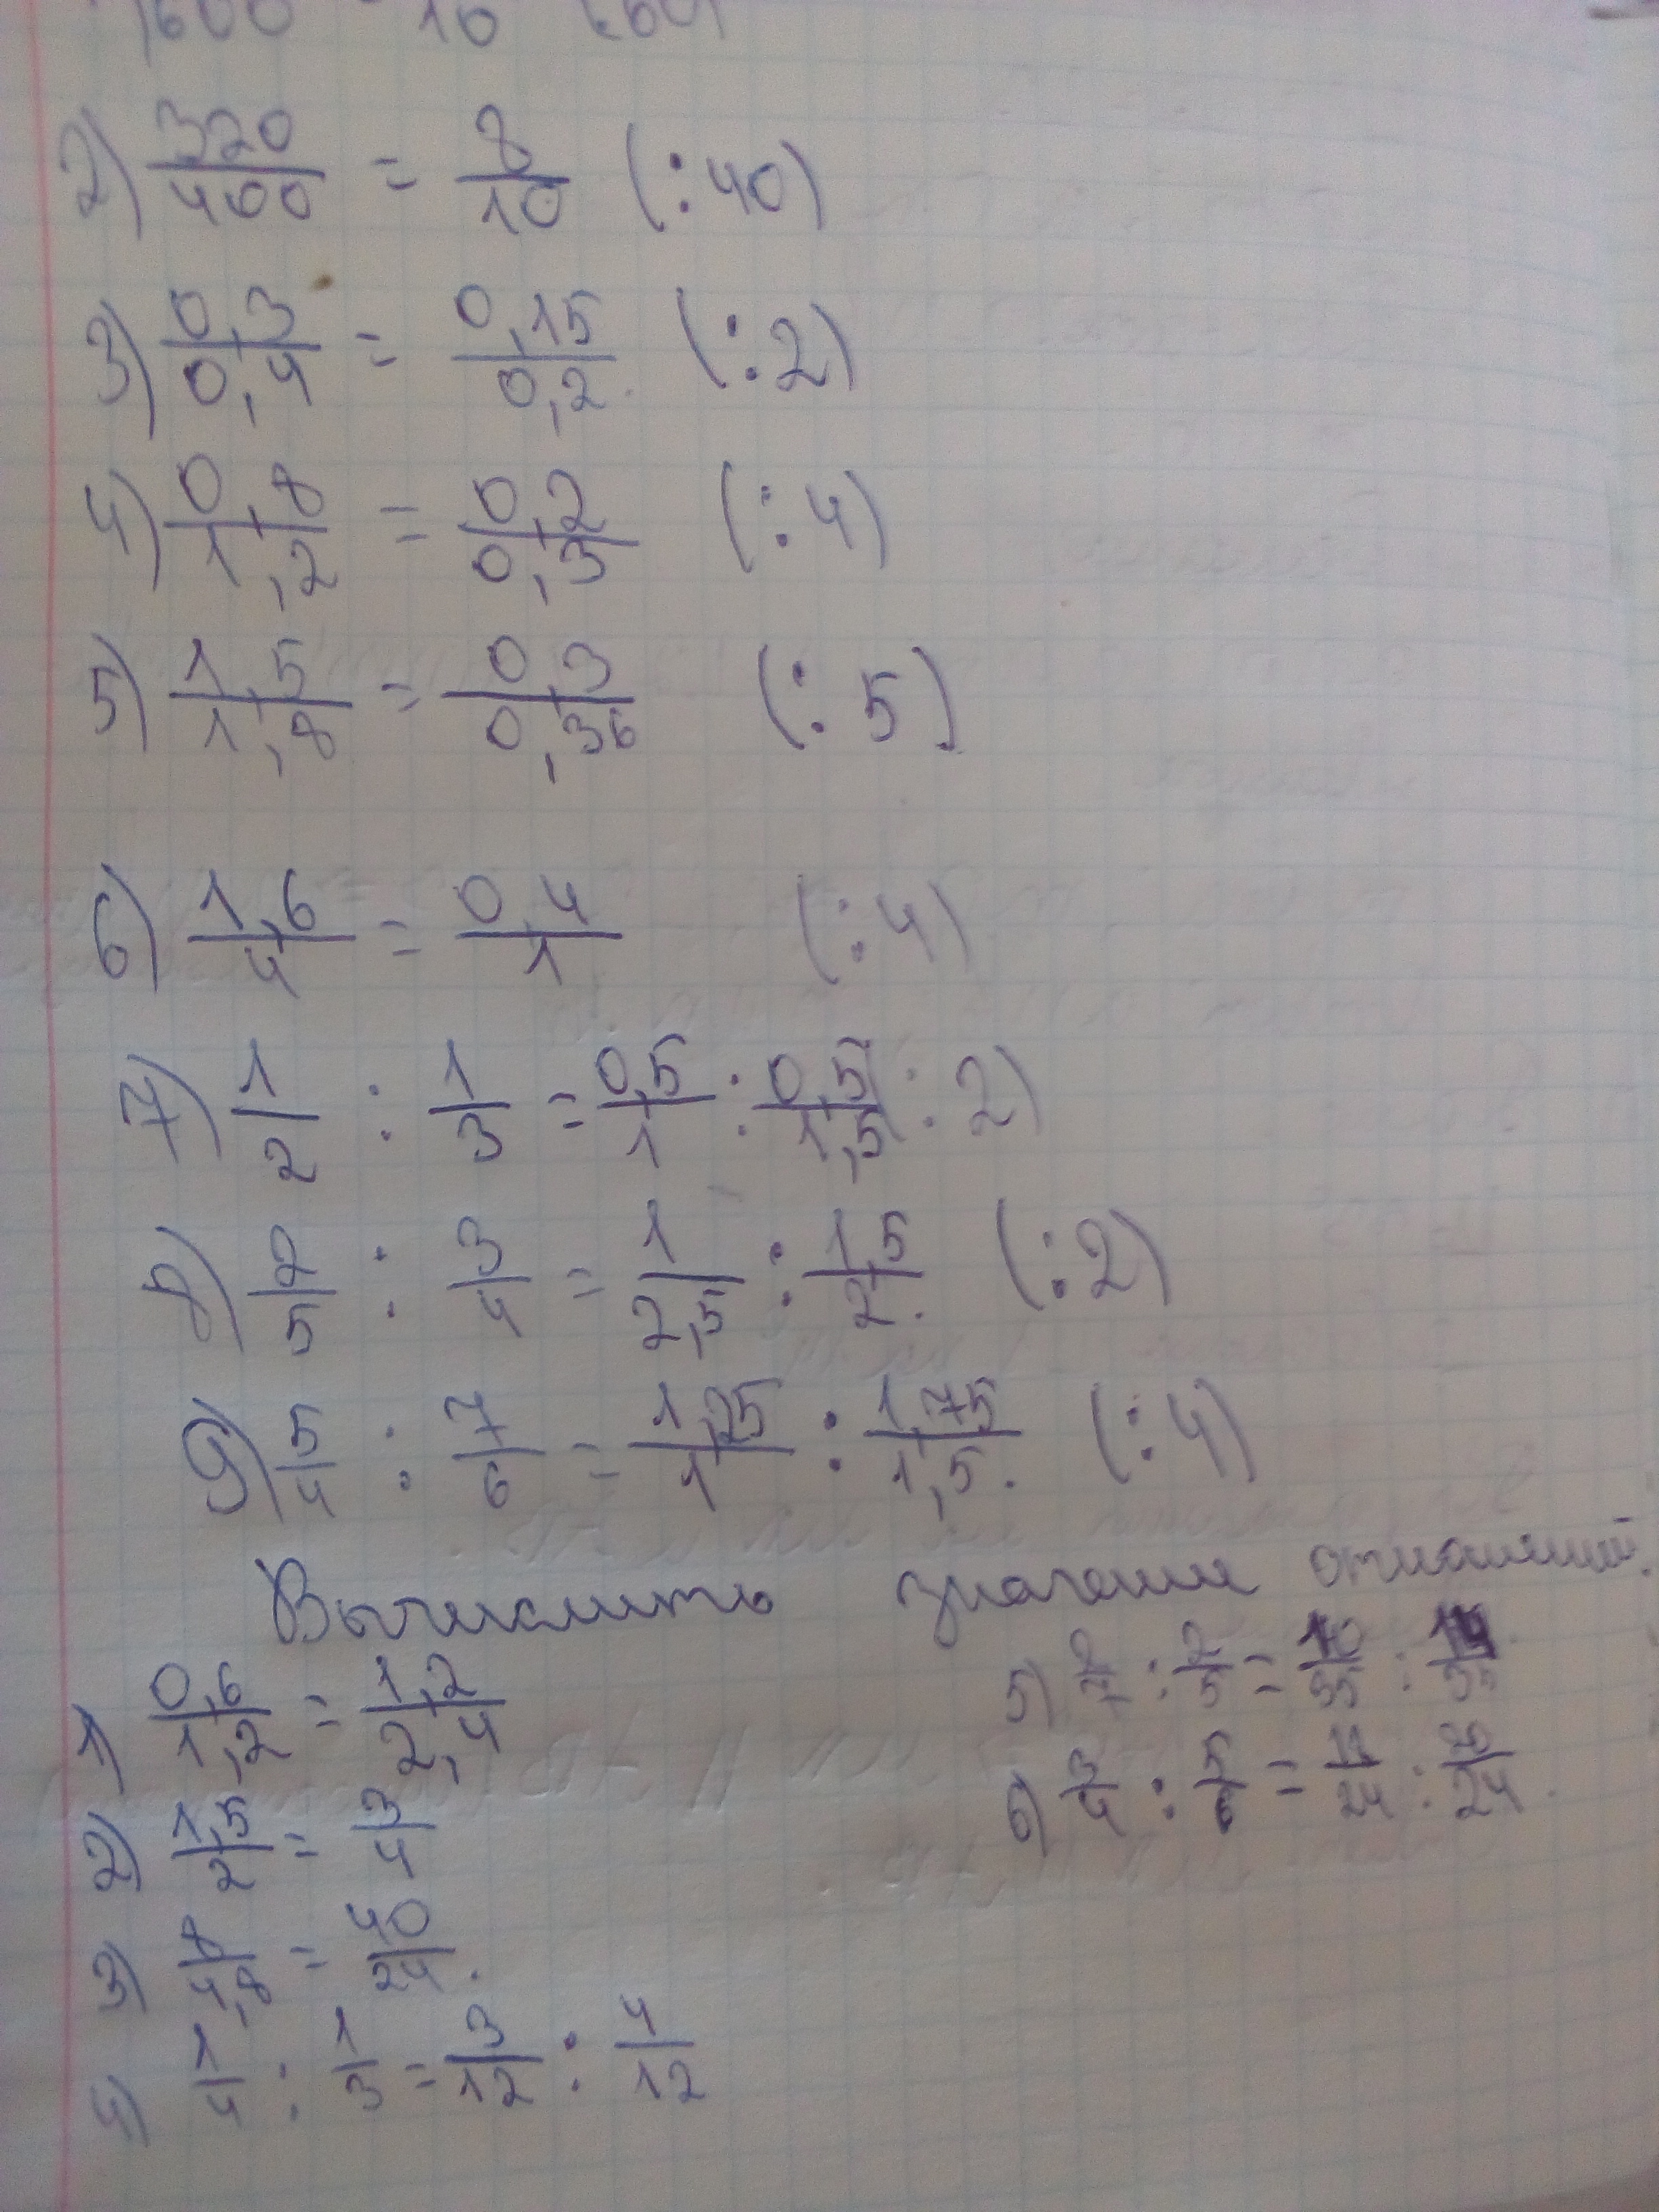 2) 320/400 = 8/10 (:40)
3) 0,3/0,4 = 0,15/0,2. (:2)
4) 0,8/1,2 = 0,2/0,3 (:4)
5) 1,5/1,8 = 0,3/0,36 (:5)
6) 1,6/4 = 0,4/1 (:4)
7) 1/2 : 1/3 = 0,5/1 : 0,5/1,5 (:2)
8) 2/5 : 3/4 = 1/2,5 : 1,5/2. (:2)
9) 5/4 : 7/6 = 1,25/1 : 1,75/1,5. (:4)
Вычислить значение отношений.
1) 0,6/1,2 = 1,2/2,4
2) 1,5/2 = 3/4
3) 8/4,8 = 40/24.
4) 1/4 : 1/3 = 3/12 : 4/12
5) 2/7 : 2/5 = 10/35 : 14/35
6) 3/4 : 5/6 = /24 : 20/24.